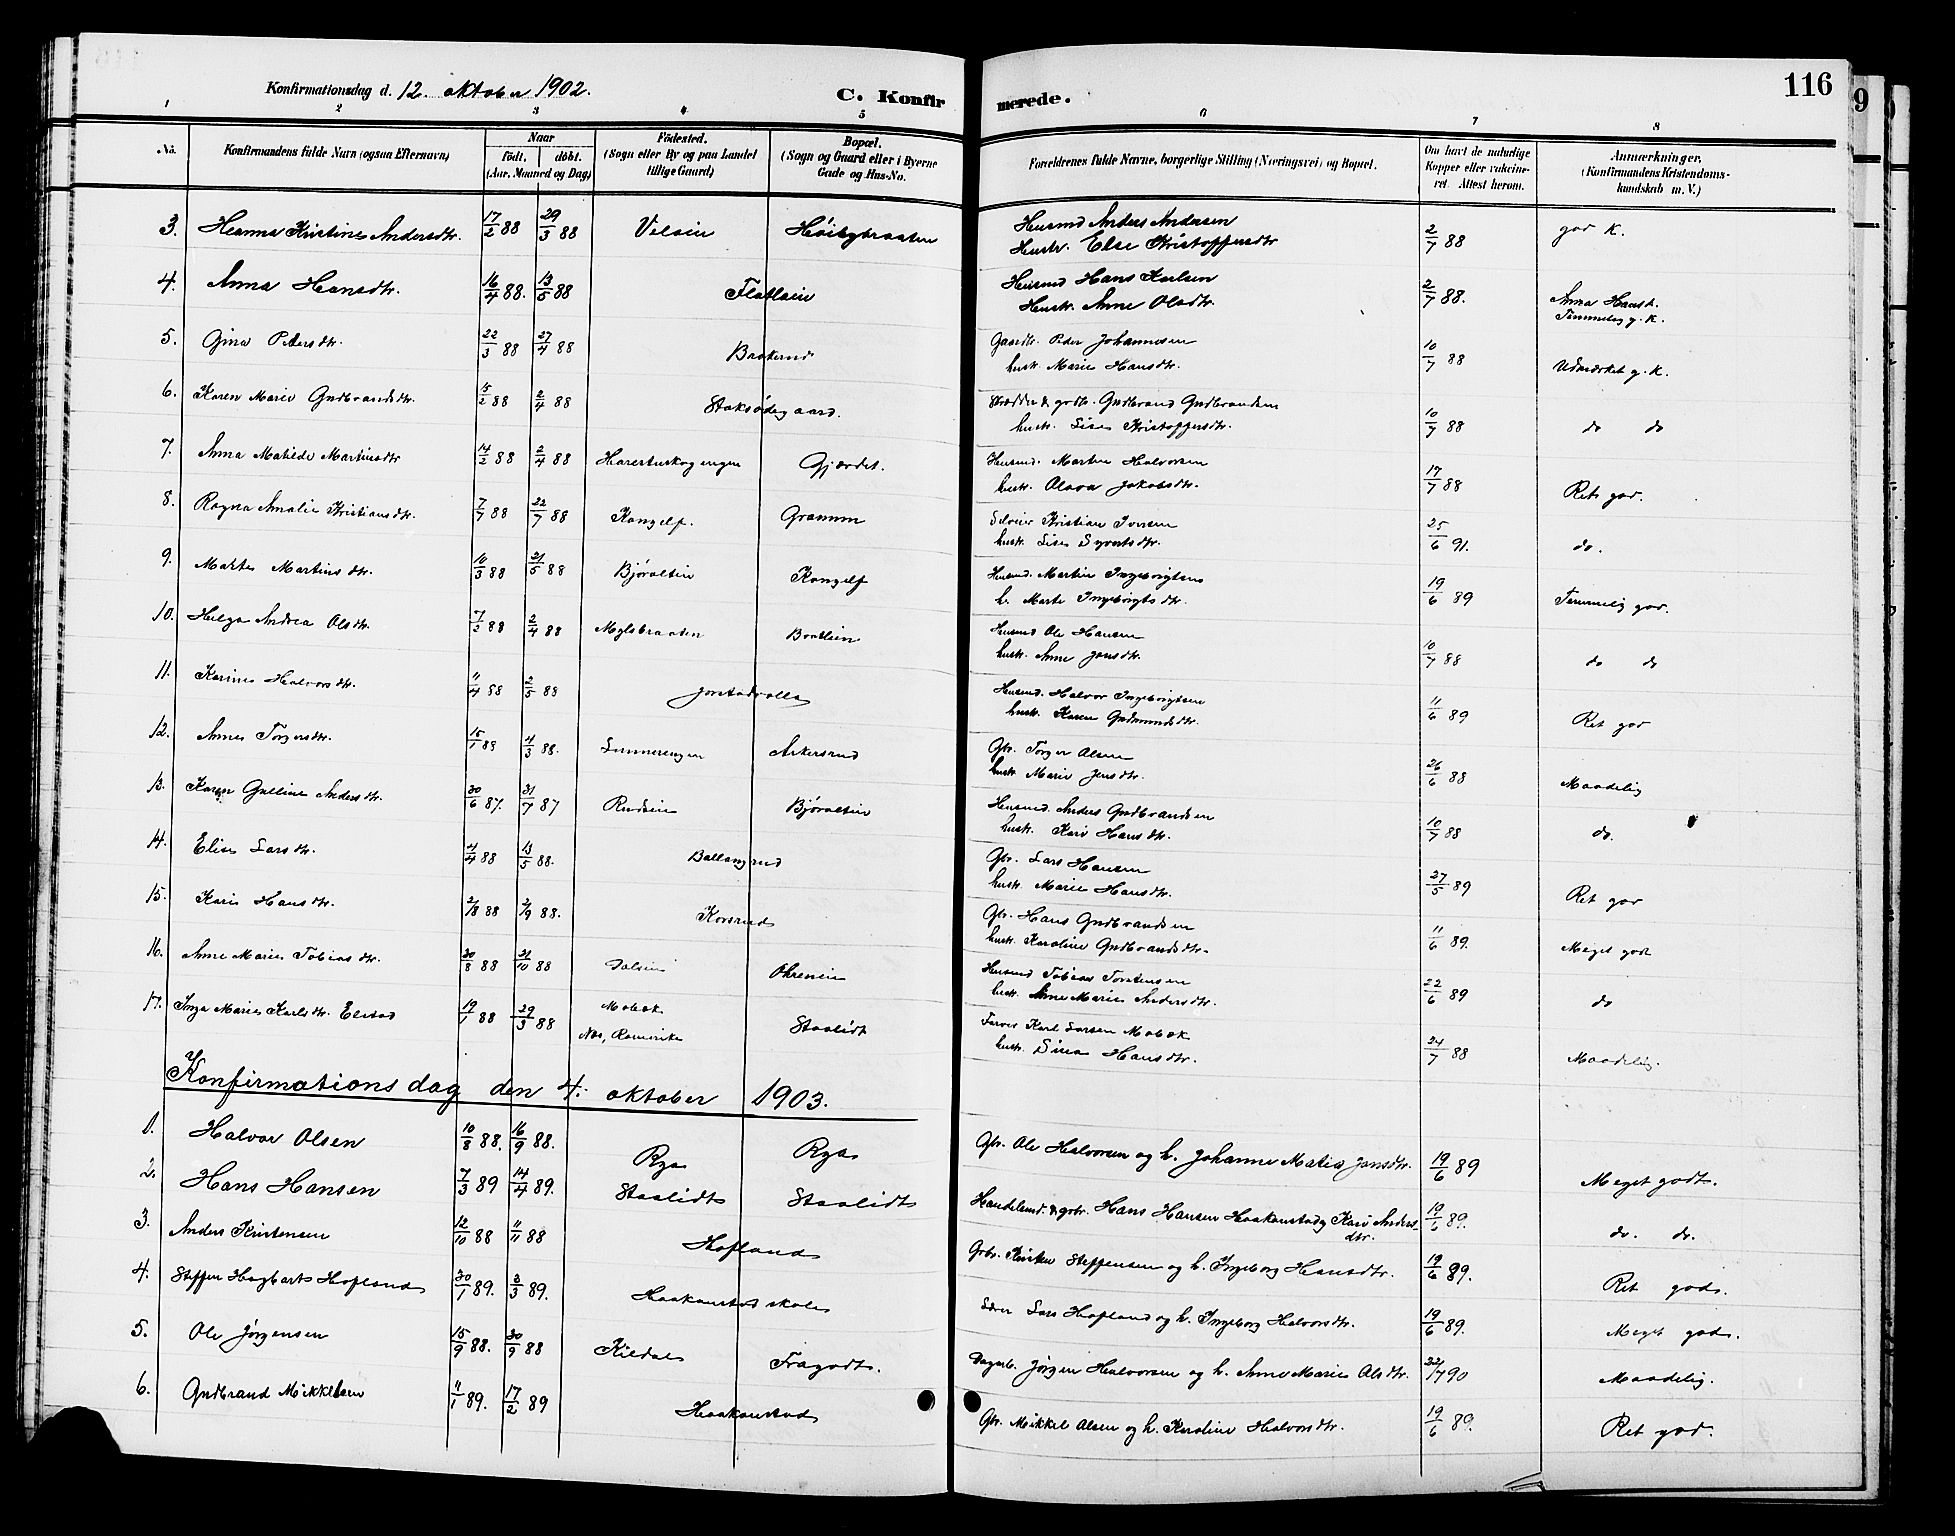 116
Konfirmationsdag d. 12. oktober 1902.
C. Konfirmerede.
1 2 3 4 5 6 7 8
No. | Konfirmandens fulde Navn (ogsaa Efternavn) | Naar födt. döbt. (Aar, Maaned og Dag) | Födested. (Sogn eller By og paa Landet tillige Gaard) | Bopæl. (Sogn og Gaard eller i Byerne Gade og Hus-No. | Forældrenes fulde Navne, borgerlige Stilling (Næringsvei) og Bopæl. | Om havt de naturlige Kopper eller vakcineret. Attest herom. | Anmærkninger. (Konfirmandens Kristendomskundskab m. V.)
3. Hanna Kristine Andersdtr. 17/2 88 29/3 88 Velsin Höibybraaten Husmd Anders Andersen Hustr. Else Kristoffersdtr 2/7 88 god K.
4. Anna Hansdtr. 16/4 88. 13/5 88 Flatlein Husmd Hans Karlsen Hustr. Anne Olsdtr. 2/7 88. Anna Hansd. Temmelig g. K.
5. Gina Petersdtr. 22/3 88 27/4 88 Baakerud Gaardbr. Peder Johannesen hustr. Marie Hansdtr. 10/7 88 Udmærket g. K.
6. Karen Marie Gudbrandsdtr. 15/2 88 2/4 88 Staksödegaard. Skrædder & grdbr. Gudbrand Gudbrandsen hustr. Lise Kristoffersdtr. 10/7 88 do do
7. Anna Matilde Martinsdtr 14/2 88 2/4 88 Harestuskogengen Gjærdet. Husmd. Martin Halvorsen hustr. Olava Jakobsdtr. 17/7 88 Ret god.
8. Ragna Amalie Kristiansdtr. 7/7 88 22/7 88 Kongelf. Gramm Selveier Kristian Iversen hustr. Lise Syvertsdtr. 25/6 91. do.
9. Marte Martinsdtr. 10/3 88 21/5 88 Björaltin Kongelf Husmd. Martin Ingebrigtsen h. Marte Ingebrigtsdtr. 19/6 89 Temmelig god.
10. Helga Andrea Olsdtr. 7/2 88 2/4 88 Mylsbraaten Braatlien Husmd Ole Hansen hustr. Anne Jensdtr. 10/7 88 do do
11. Karine Halvorsdtr. 11/4 88 2/5 88 Jorstadvolla Husmd. Halvor Ingebrigtsen hustr. Karen Gudmundsdtr. 11/6 89 Ret god
12. Anne Torgersdtr. 15/1 88 4/3 88. Simmerengen Askersrud Gbr. Torger Olsen hustr. Marie Jensdtr. 26/6 88 Maadelig
13. Karen Gulline Andersdtr. 30/6 87. 31/7 87 Rudsein Björaltin Husmd. Anders Gudbrandsen hustr. Kari Hansdtr. 10/7 88 do.
14. Elise Larsdtr. 4/4 88 13/5 88. Ballangrud Gbr. Lars Hansen hustr. Marie Hansdtr. 27/5 89 Ret god
15. Karie Hansdtr. 2/8 88 2/9 88. Korsrud Gbr. Hans Gudbrandsen hustr. Karoline Gudbrandsdtr. 11/6 89. Meget godt
16. Anne Marie Tobiasdtr. 20/8 88 21/10 88 Dalsein Ohrenein Husmd Tobias Torstensen hustr. Anne Marie Andersdtr. 22/6 89 do
17. Inga Marie Karlsdtr. Elstad 19/1 88 29/3 88 Mobæk Næs, Romerike Staalidt Farver Karl Larsen Mobæk hustr. Sina Hansdtr. 24/7 88 Maadelig.
Konfirmationsdag den 4: oktober 1903.
1. Halvor Olsen 10/8 88. 16/9 88. Rya Rya Gbr. Ole Halvorsen og h. Johanne Matia Jansdtr. 19/6 89 Meget godt.
2. Hans Hansen 7/3 89 14/4 89. Staalidt Staalidt Handelsmd. & gbr. Hans Hansen Haakonstad og Kari Andersdtr. 19/6 89. do. do.
3. Anders Kristensen 12/10 88 11/11 88 Hofland Gbr. Kristen Steffensen og h. Ingeborg Hansdtr. 19/6 89. Ret god.
4. Steffen Hagbart Hofland 30/1 89. 3/3 89. Haakonstad skole Lærer Lars Hofland og h. Ingeborg Halvorsdtr. 19/6 89. Meget god.
5. Ole Jörgensen 15/9 88. 30/9 88 Kildal Fragodt. Dagarb. Jörgen Halvorsen og h. Anne Marie Olsdtr. 22/7 90 Maadelig.
6. Gudbrand Mikkelsen 11/1 89. 17/2 89 Haakonstad Gbr. Mikkel Olsen og h. Karoline Halvorsdtr. 19/6 89. Ret god.